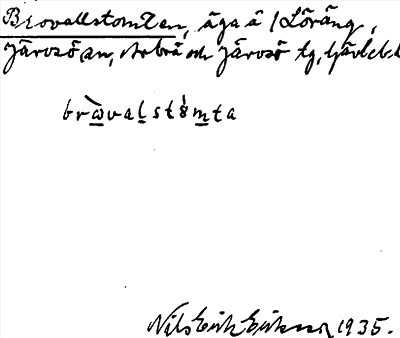 Brovallstomten, äga å 1 Löräng,
Järvsö sn, Arbrå och Järvsö tg, Gävleb.l
bròvalstómta
Nils Erik Eriksson 1935.